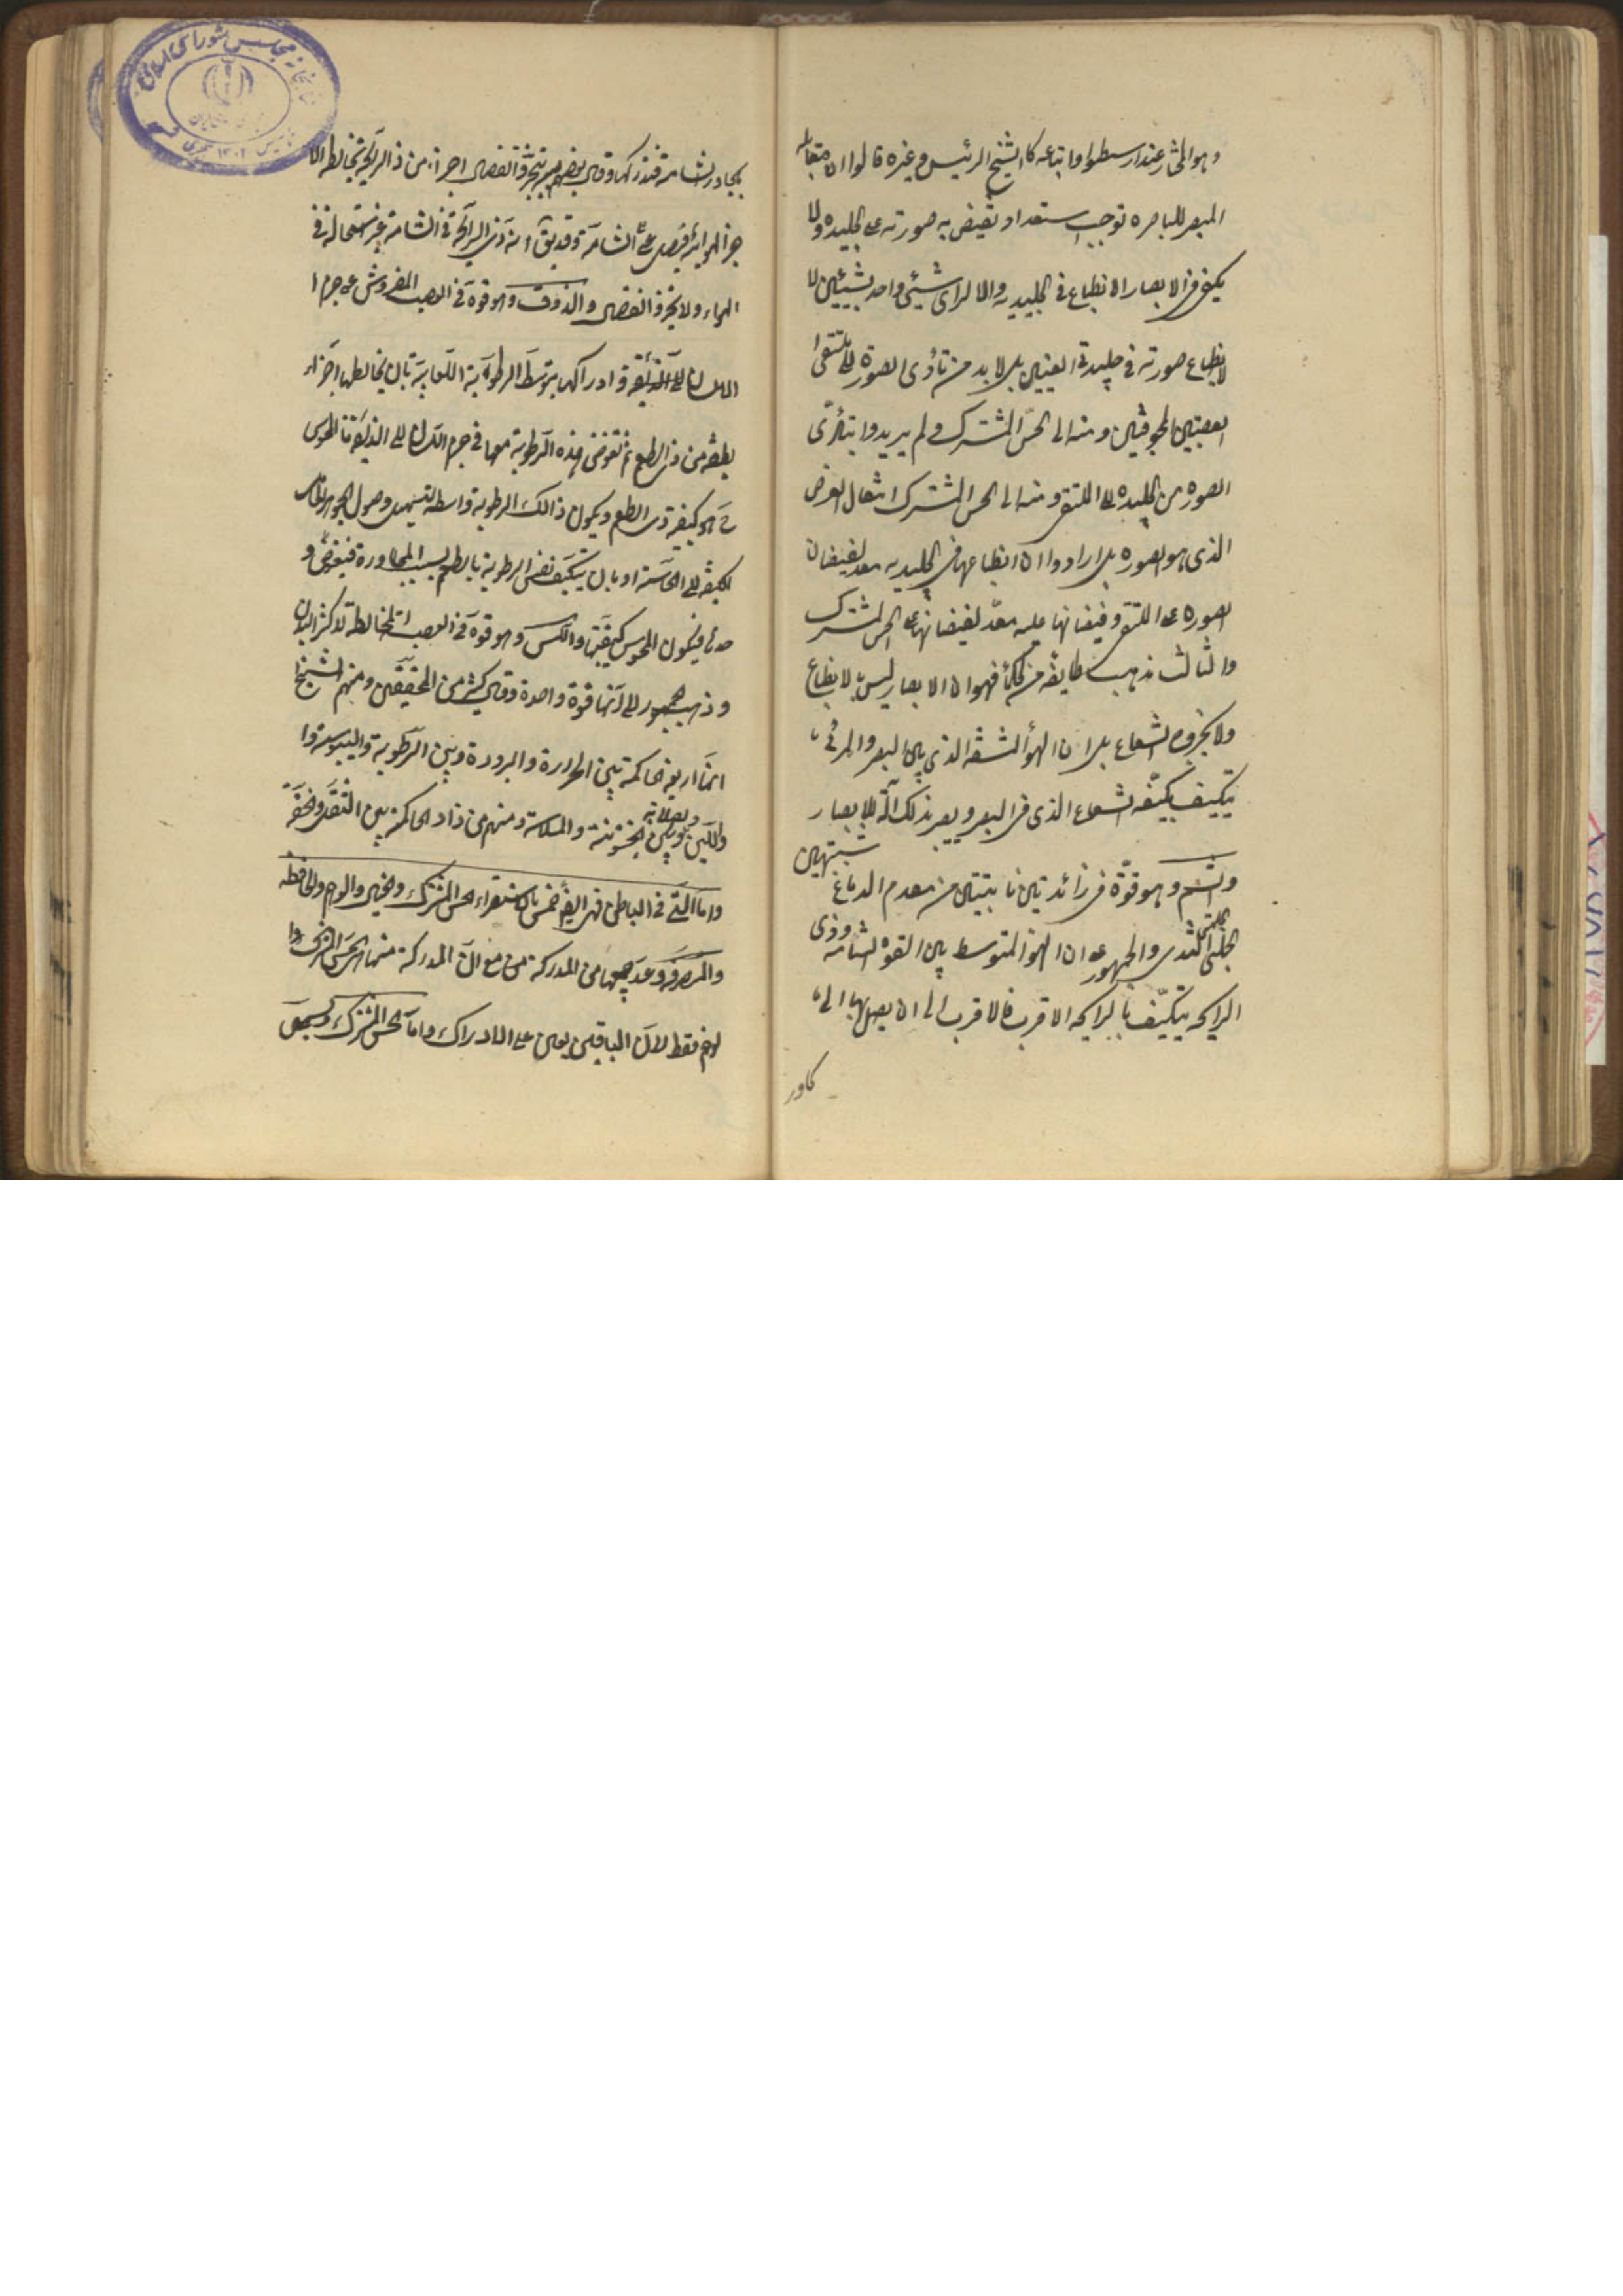 وهو المختار عند ارسطو واتباعه كالشيخ الرئيس وغيره قالوا ان مقابله
المبصر للباصره توجب استعداد تفيض به صورته على الجليديه ولا
يكفى فى الابصار الانطباع فى الجليديه والا لراى شيئى واحد شيئين لا
لانطباع صورته فى جليدتى العينين بل لا بد من تأدى الصورة الى ملتقى ا
العصبتين المجوفتين ومنه الى الحس المشترك ولم يريدوا بتأدّى
الصوره من الجليديه الى الملتقى ومنه الى الحس المشترك انتقال العرض
الذى هو الصوره بل ارادوا ان انطباعها فى الجليديه معد لفيضان
الصوره على الملتقى وفيضانها عليه معدّ لفيضانها على الحس المشترك
والثالث مذهب طايفه من الحكمأ فهو ان الابصار ليس بالانطباع
ولا بخروج الشعاع بل ان الهوأ المشف الذى بين البصر والمرئى
يتكيف بكيفه الشعاع الذى فى البصر ويصير بذلك آلة للابصار
والشم وهو قوّة فى زائدتين نابتتين من مقدم الدماغ شبيهتين
بحلمتى الثدى والجمهور على ان الهوأ المتوسط بين القوه الشامه وذى
الرايحه يتكيّف بالرايحه الاقرب فالاقرب الى ان يصل بها الى ما
يجاور الشامة فتدركها وقال بعضهم بتبخّر وانفصال اجزاء من ذى الرايحة تخالط الا
جزأ الهوائية فيصل الى الشامة وقد يقال انه ذى الرايحة فى الشامة من غير استحالة فى
الهواء ولا تبخر وانفصال والذوق وهو قوة فى العصب المفروش على جرم ا
اللسان الى الذائقة وادراكها بتوسط الرطوبة اللعابية بان يخالطها اجزاء
لطيفة من ذى الطعم ثم تغوص هذه الرطوبة معها فى جرم اللسان الى الذايقة فالمحسوس
ح هو كيفية ذى الطعم ويكون ذالك الرطوبة واسطة لتسهيل وصول الجوهر الحامل
للكيفية الى الحاسة او بان يتكيف نفس الرطوبة بالطعم بسبب المجاورة فتغوص و
حدها فيكون المحسوس كيفيتها واللمس وهو قوة فى العصب المخالطة لاكثر البدن
وذهب الجمهور الى انها قوة واحدة وقال كثير من المحققين ومنهم الشيخ
انها اربعة حاكمة بين الحرارة والبرودة وبين الرطوبة واليبوسة وا
واللين والصلابة وبين الخشونة والملاسة ومنهم من زاد الحاكمة بين الثقل والخفة
واما التى فى الباطن فهى ايضا خمس بالاستقراء الحس المشترك والخيال والوهم والحافظة
والمتصرفة وعد جميعها من المدركة مع ان المدركة منها الحس المشترك وا
لوهم فقط لان الباقين يعين على الادراك واما الحس المشترك ويسمى